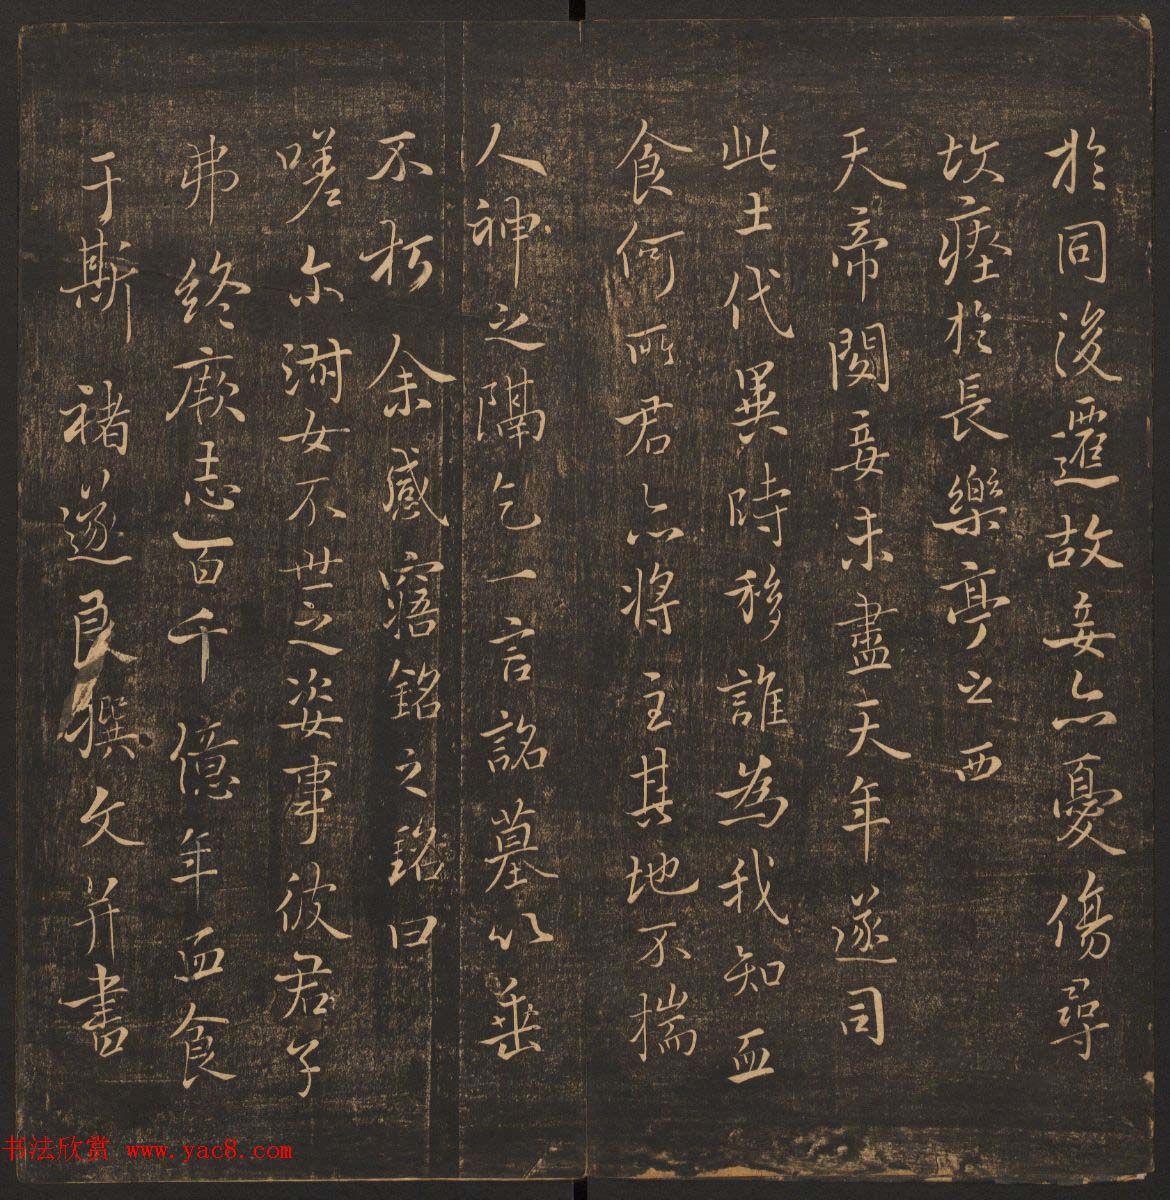 於同後遷故妾亦憂傷尋
故瘞於長樂亭之西
天帝閔妾未盡天年遂司
此土代異時移誰為我知血
食何所君亦將主其地不揣
人神之隔乞一言銘墓以垂
不朽余感寤銘之銘曰
嗟尔淑女不世之姿事彼君子
弗終厥志百千億年血食
于斯 褚遂良撰文并書
书法欣赏 www.yac8.com